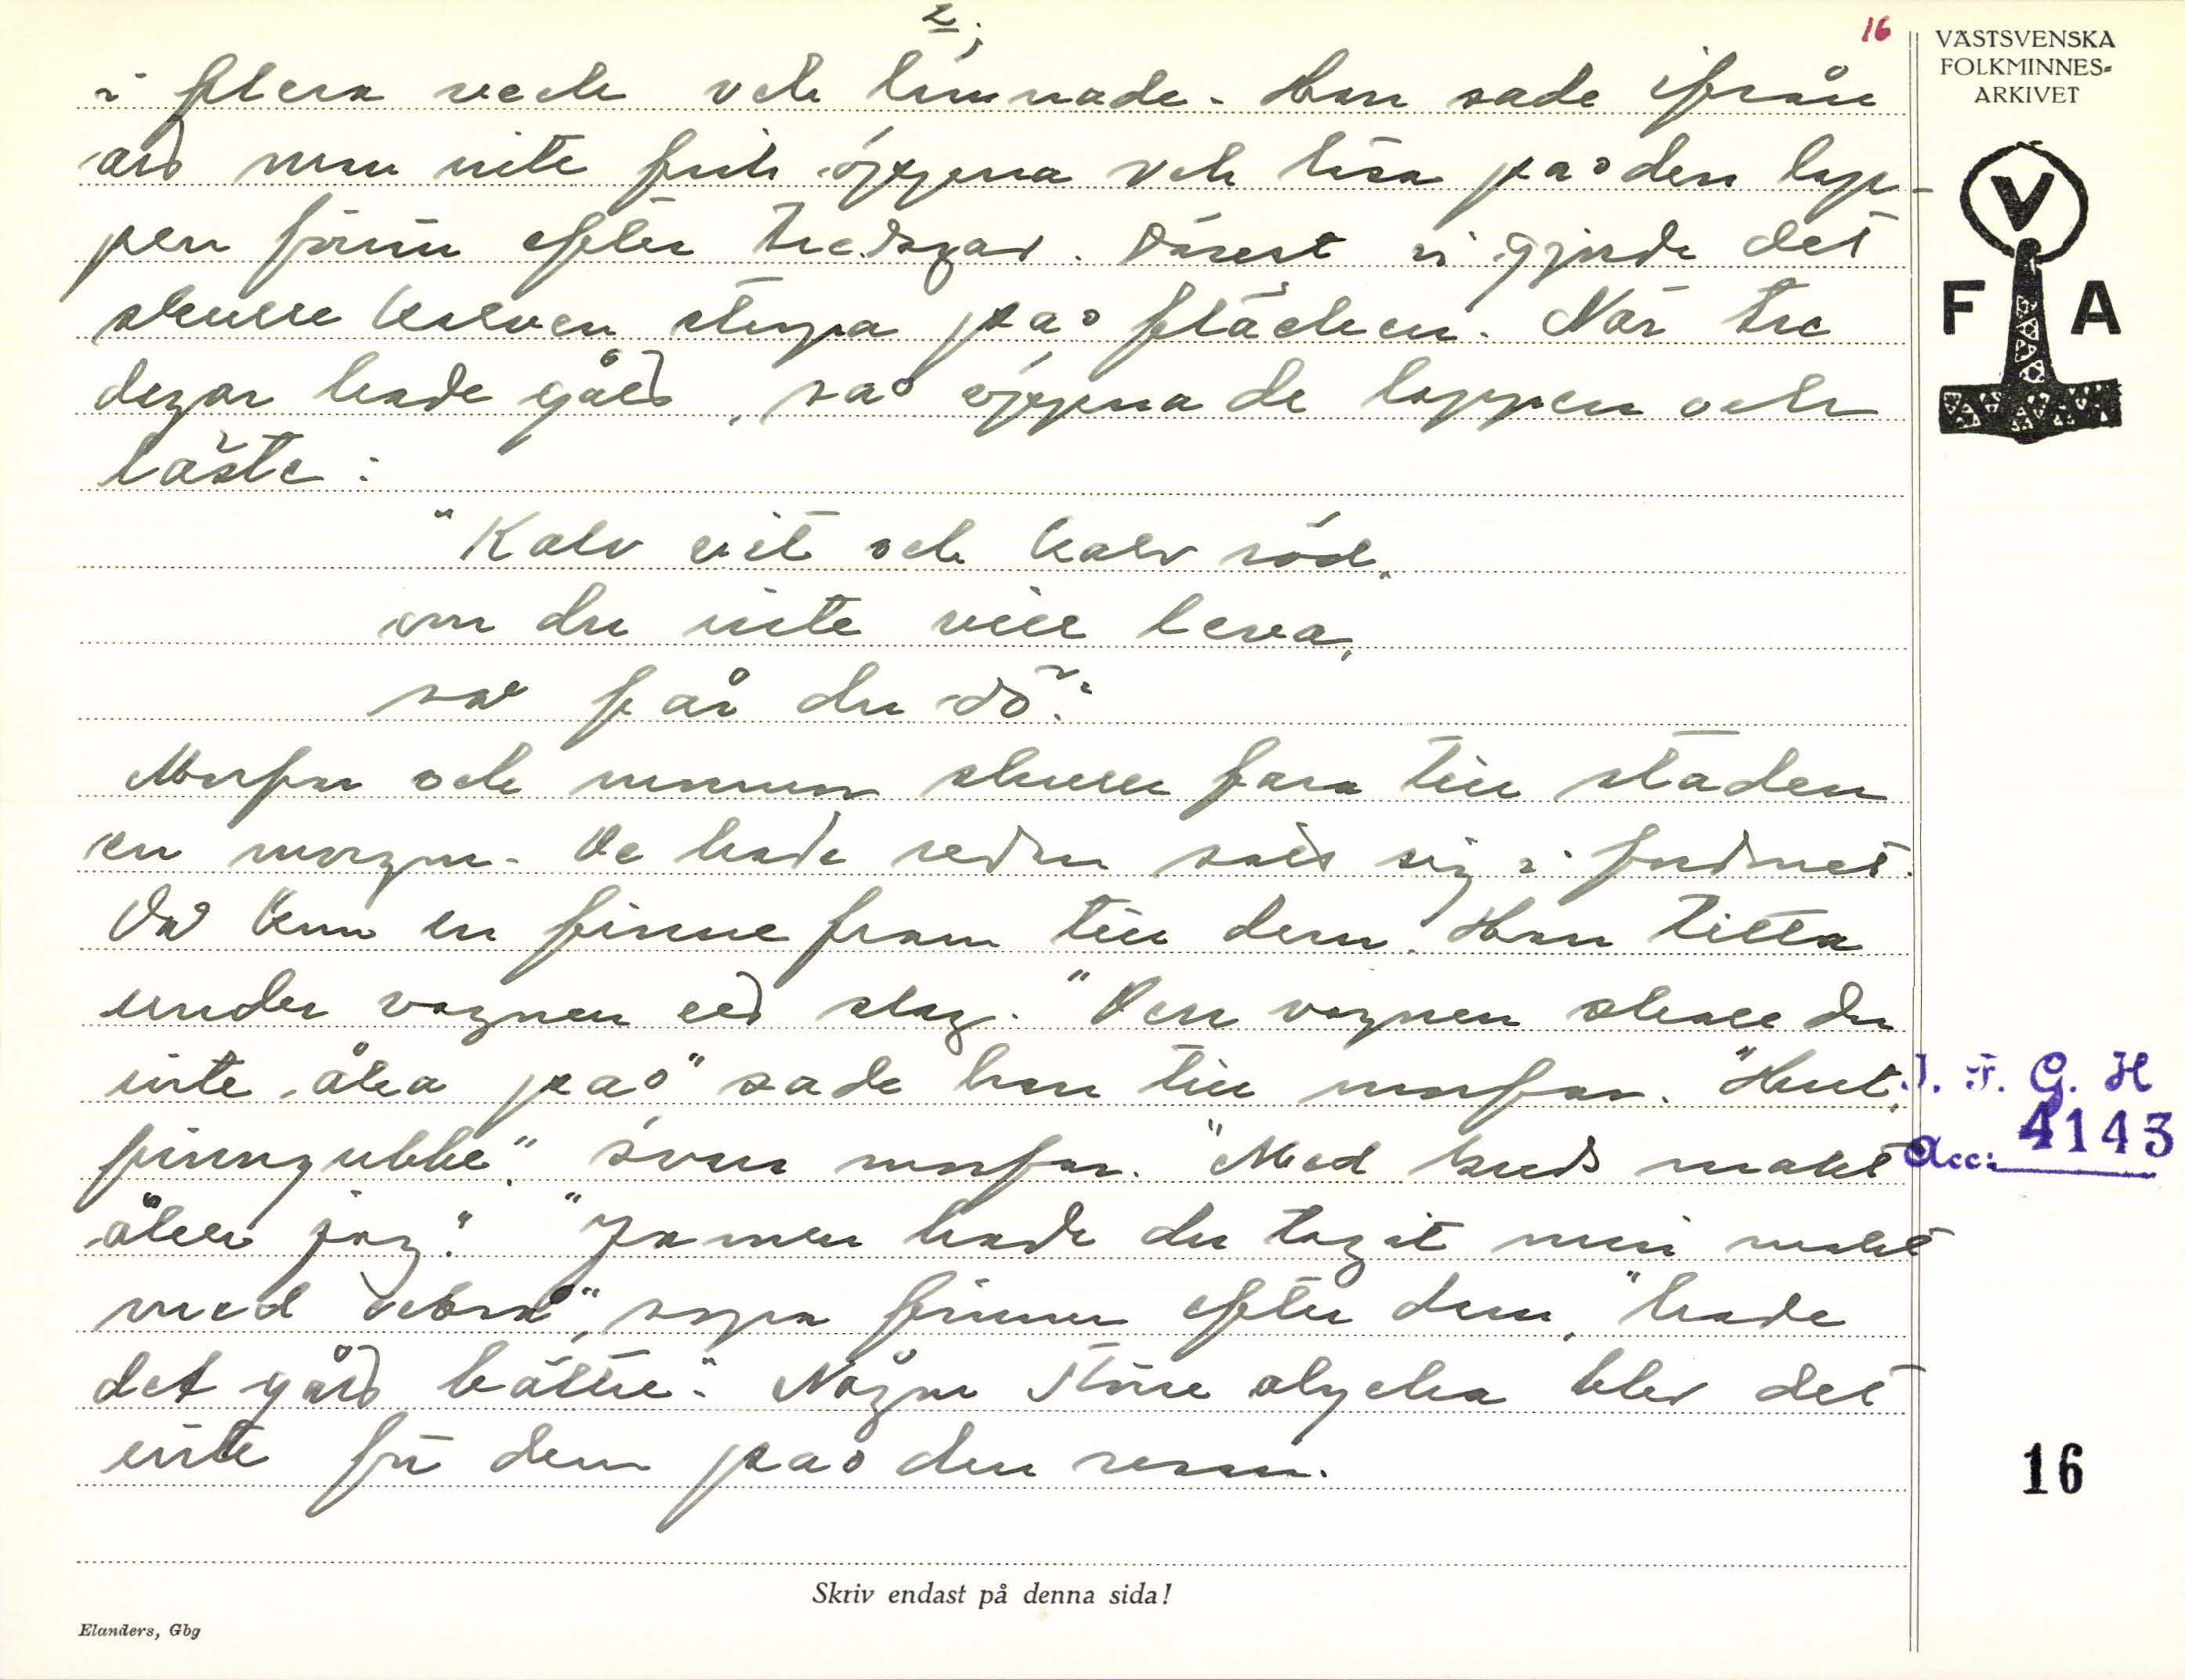 2.
16
i flera veck och lämnade. Han sade ifrån
att man inte fick öppna och läsa på den lap-
pen förrn efter tre dagar. Därest vi gjorde det
skulle kalven stupa på fläcken. När tre
dagar hade gått, så öppna de lappen och
läste:
"Kalv vit och kalv röd,
om du inte vill leva,
så får du dö".
Morfar och mormor skulle fara till staden
en morgon. De hade redan satt sig i fordonet.
Då kom en finne fram till dem. Han titta
under vagnen ett slag. "Den vagnen skall du
inte åka på" sade han till morfar. "Hut,
finngubbe", svara morfar. "Med Guds makt
åker jag." "Ja men hade du tagit min makt
med också", ropa finnen efter dem, "hade
det gått bättre". Någon större olycka blev det
inte för dem på den resan.
VÄSTSVENSKA
FOLKMINNES-
ARKIVET
V
F A
I. F. G. H
Acc: 4143
16
Skriv endast på denna sida!
Elanders, Gbg